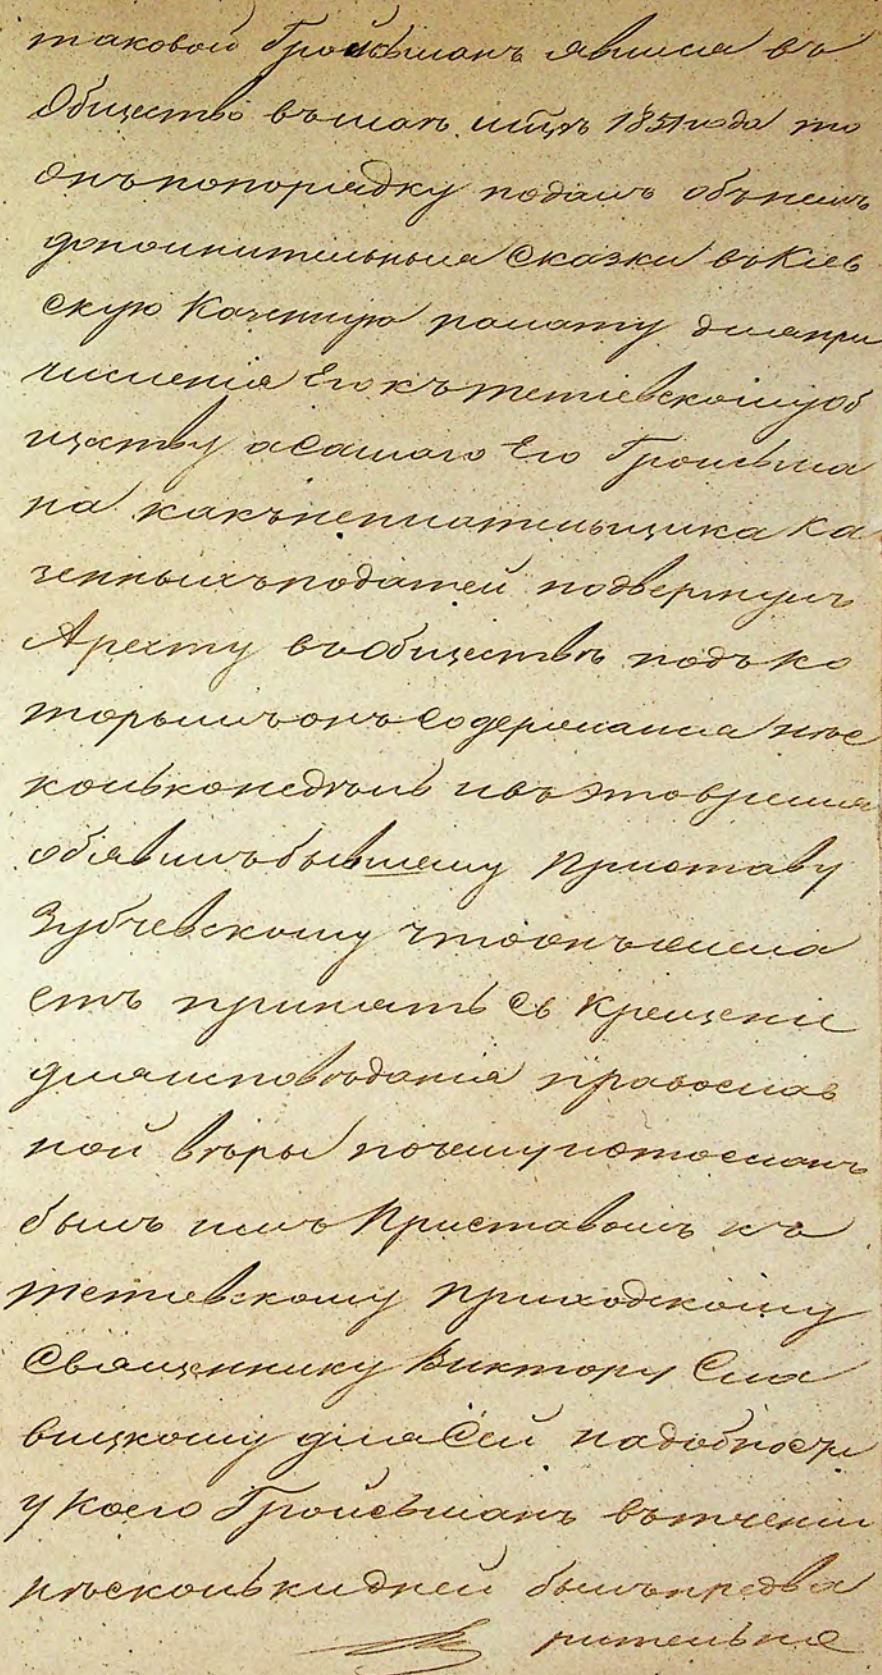 таковой Гройсьманъ явился въ
Общество въ маѣ мцѣ 1851 года то
онъ попорядку подалъ объ немъ
дополнительныя Сказки въ Кіев
скую Казенную палату для при
численія Его къ тетіевскому об
ществу а Самого Его Гройсьма
на какъ неплательщика ка
зенныхъ податей подвергнулъ
Аресту въ Обществѣ подъ ко
торымъ онъ Содержался нѣс
колько недѣль и въ это время
объявилъ бывшему Приставу
Зубчевскому что онъ желла
етъ принять Св крещеніе
для исповѣданія православ
ной вѣры почему и отосланъ
былъ имъ Приставомъ къ
тетіевскому приходскому
Священнику Виктору Сла
вицкому для Сей надобности
у коего Гройсьманъ въ теченіи
нѣсколькихъ дней былъ предва
рительно